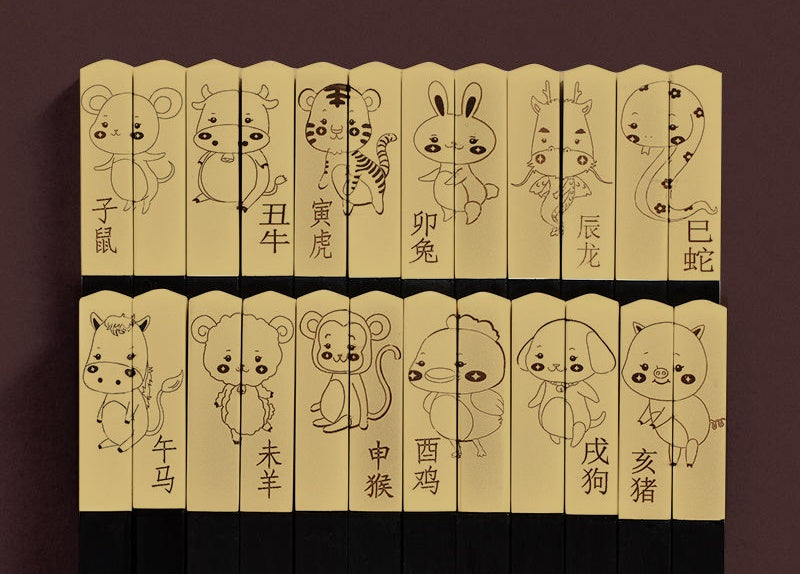 子鼠
丑牛
寅虎
卯兔
辰龙
巳蛇
午马
未羊
申猴
酉鸡
戌狗
亥猪